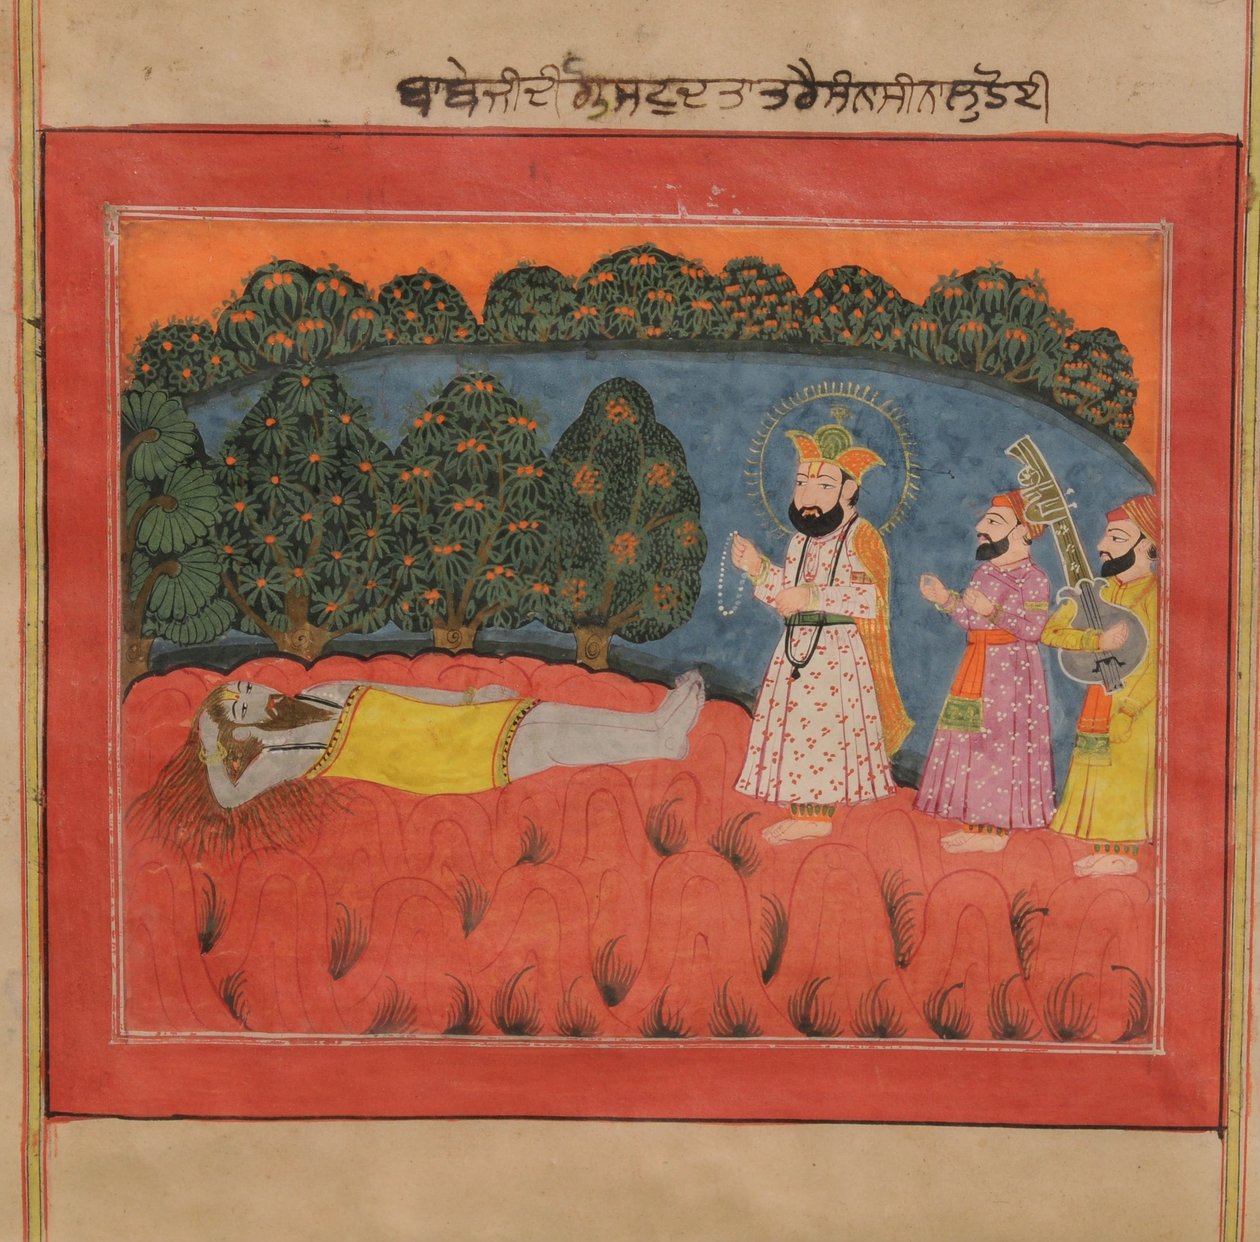 ਬਾਬੇ ਜੀ ਦੀ ਗੋਸਟੁ ਦਤਾਤਰੈ ਸੰਨਾਸੀ ਨਾਲੁ ਹੋਈ